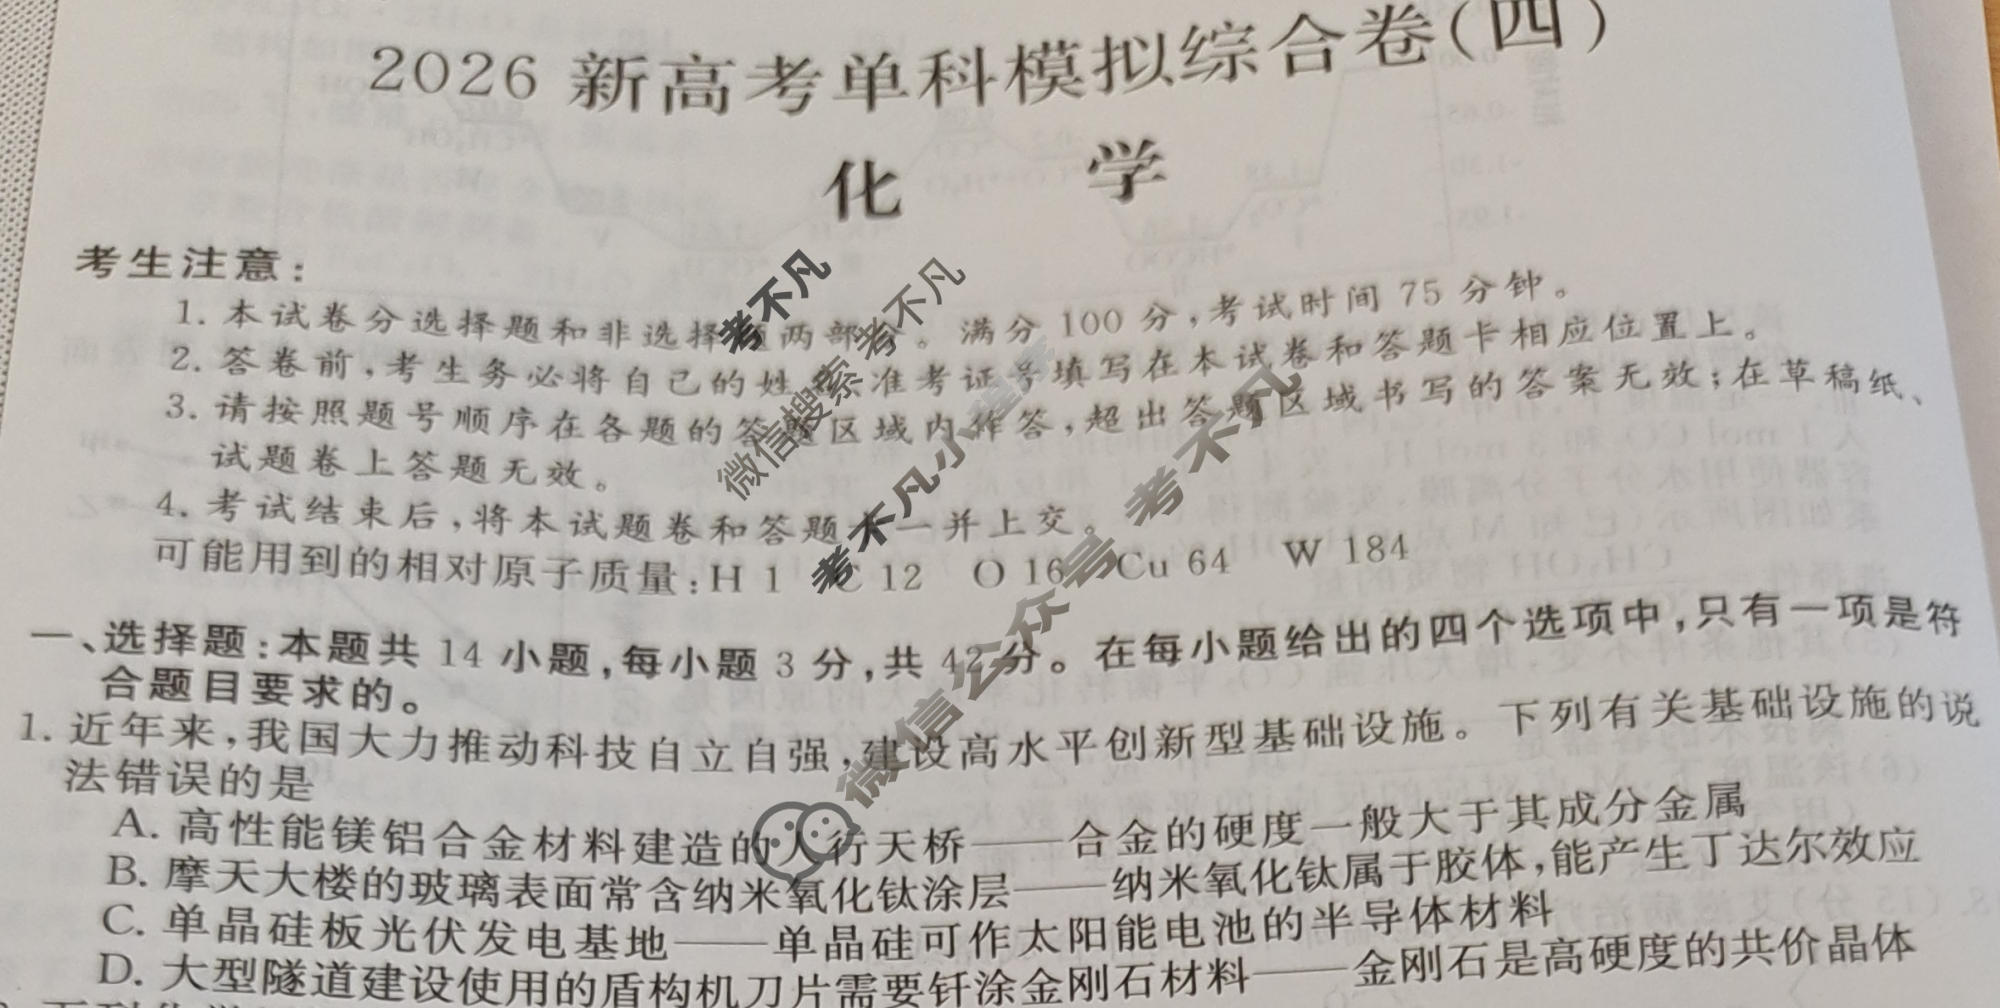 2026 新高考单科模拟综合卷(四)
化 学
考生注意:
1. 本试卷分选择题和非选择题两部分。满分 100 分,考试时间 75 分钟。
2. 答卷前,考生务必将自己的姓名、准考证号填写在本试卷和答题卡相应位置上。
3. 请按照题号顺序在各题的答题区域内作答,超出答题区域书写的答案无效;在草稿纸、
试题卷上答题无效。
4. 考试结束后,将本试题卷和答题卡一并上交。
可能用到的相对原子质量:H 1 C 12 O 16 Cu 64 W 184
一、选择题:本题共 14 小题,每小题 3 分,共 42 分。在每小题给出的四个选项中,只有一项是符
合题目要求的。
1. 近年来,我国大力推动科技自立自强,建设高水平创新型基础设施。下列有关基础设施的说
法错误的是
A. 高性能镁铝合金材料建造的人行天桥——合金的硬度一般大于其成分金属
B. 摩天大楼的玻璃表面常含纳米氧化钛涂层——纳米氧化钛属于胶体,能产生丁达尔效应
C. 单晶硅板光伏发电基地——单晶硅可作太阳能电池的半导体材料
D. 大型隧道建设使用的盾构机刀片需要钎涂金刚石材料——金刚石是高硬度的共价晶体
考不凡
微信搜索 考不凡
考不凡小程序
微信公众号 考不凡